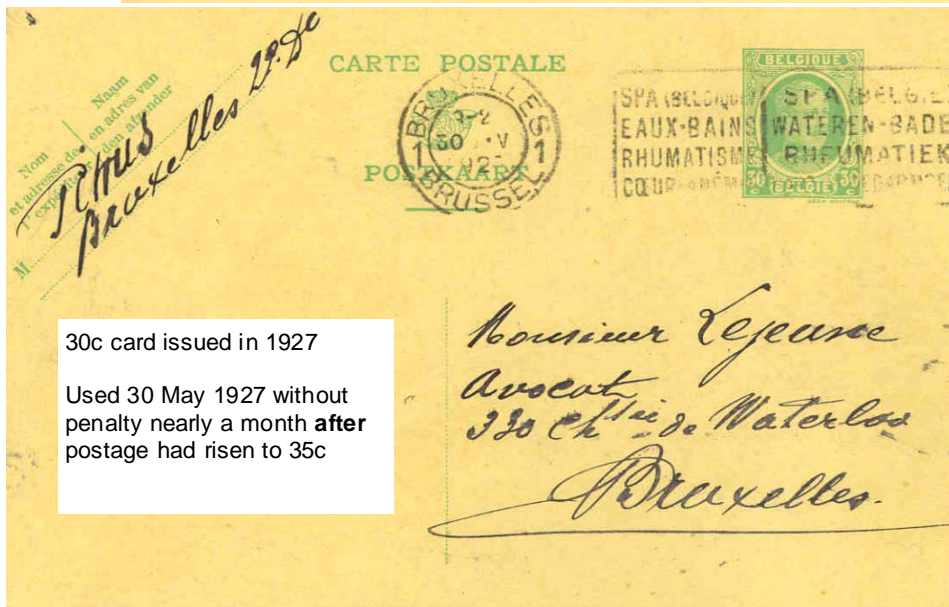 Nom
et adresse de
l'expé
Naam
en adres van
den afzender
M
Bruxelles
CARTE POSTALE
POSTKAART
BRUXELLES
1 1
30 V
BRUSSEL
SPA (BELGIQUE)
EAUX-BAINS
RHUMATISME
CŒUR-ANÉM
SPA (BELGIE
WATEREN-BADE
RHEUMATIEK
BELGIQUE
30 c 30 c
BELGIË
30c card issued in 1927
Used 30 May 1927 without
penalty nearly a month after
postage had risen to 35c
Monsieur Lejeune
Avocat
330 Chée de Waterloo
Bruxelles.